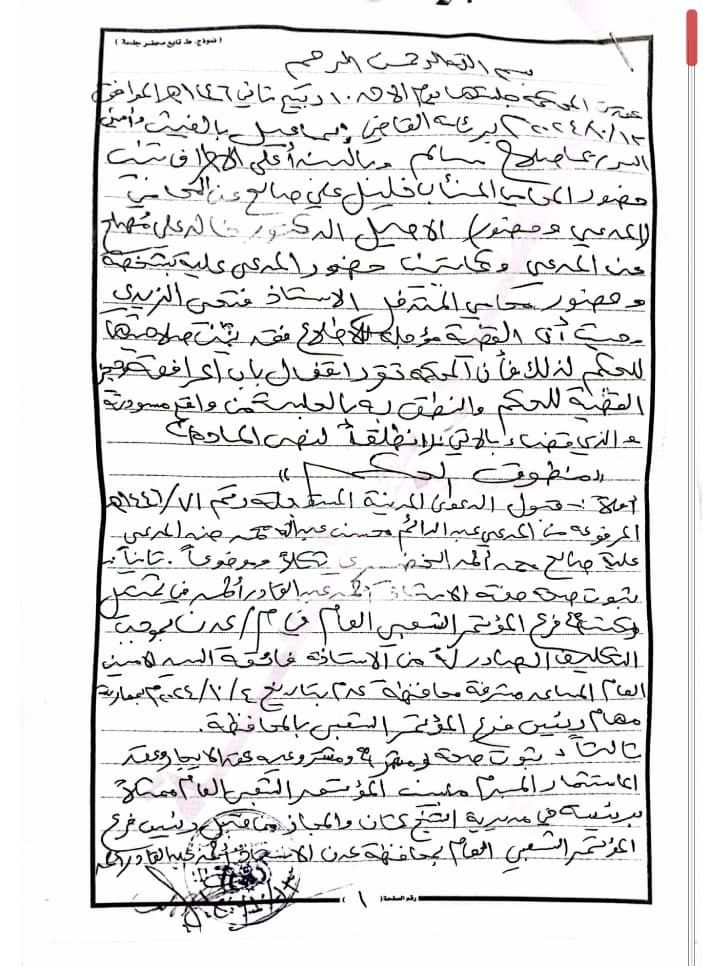 ( نموذج. ط تابع محضر جلسة )
١
بسم الله الرحمن الرحيم
عقدت المحكمة جلستها يوم الاحد ١٠ ربيع ثاني ١٤٤٦هـ الموافق
١٣/١٠/٢٠٢٤م برئاسة القاضي إسماعيل بالغيث وأمين
السر صلاح سالم وبالمناداة على الاطراف تبين
حضور المحامي المناب خليل علي صالح عن المحامي
المدعي وحضور الاصيل الدكتور خالد علي مصلح
عن المدعي وكما تبين حضور المدعي عليه بشخصه
وحضور محامي المتدخل الاستاذ فتحي الزيدي
وحيث أن القضية مؤجلة للاطلاع فقد تبينت صلاحيتها
للحكم لذلك فأن المحكمة تقرر اقفال باب المرافعة وحجز
القضية للحكم والنطق به بالجلسة من واقع مسودته
والذي قضاء بالاتي
"منطوق الحكم"
أولاً :- قبول الدعوى المدنية المستعجلة رقم ٧١/١٤٤٦هـ
المرفوعة من المدعي عبد الدائم محسن عبدالله ضد المدعي
عليه صالح محمد أحمد الخضري شكلاً وموضوعاً. ثانياً :
ثبوت صحة صفة الاستاذ أحمد عبدالقادر أحمد في
فرع المؤتمر الشعبي العام في م/عدن بموجب
التكليف الصادر له من الاستاذه فائقة السيد الامين
العام المساعد مشرفة محافظة عدن بتاريخ ٤/١٠/٢٠٢٤م بممارسة
مهام رئيس فرع المؤتمر الشعبي بالمحافظة.
ثالثاً : ثبوت صحة ومشروعية عقد الايجار وعقد
الاستثمار المبرم مع المؤتمر الشعبي العام ممثلاً
برئيسه في مديرية الشيخ عثمان والمجاز من قبل رئيس فرع
المؤتمر الشعبي العام بمحافظة عدن الاستاذ أحمد عبدالقادر أحمد
رقم الصفحة ( ١ )